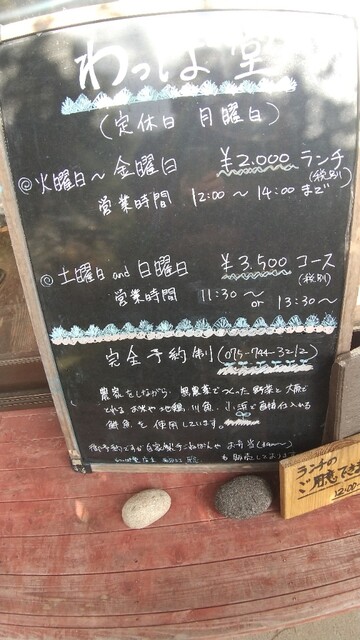 わっしょ堂
(定休日 月曜日)
◎火曜日～金曜日 ¥2.000 ランチ
(税別)
営業時間 12:00～14:00まで
◎土曜日and日曜日 ¥3.500コース
(税別)
営業時間 11:30～ or 13:30～
完全予約制 (075-744-3212)
農家をしながら、無農薬でつくった野菜と大原で
とれるお米や地鶏、川魚、小浜で直接仕入れる
鮮魚を使用しています。
お弁当
も販売しております
ランチの
ご用意できます
12:00